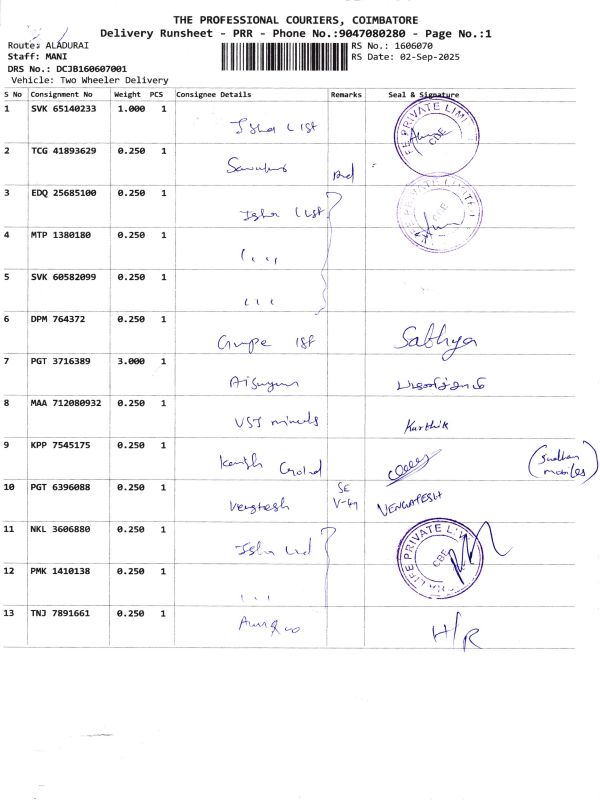 THE PROFESSIONAL COURIERS, COIMBATORE
Delivery Runsheet - PRR - Phone No.:9047080280 - Page No.:1
Route: ALADURAI
RS No.: 1606070
Staff: MANI
RS Date: 02-Sep-2025
DRS No.: DCJB160607001
Vehicle: Two Wheeler Delivery
S No Consignment No Weight PCS Consignee Details Remarks Seal & Signature
1 SVK 65140233 1.000 1
Isha LIST
PRIVATE LIMI
CBE
2 TCG 41893629 0.250 1
3 EDQ 25685100 0.250 1
Isha
PRIVATE LIMITE
CBE
4 MTP 1380180 0.250 1
5 SVK 60582099 0.250 1
6 DPM 764372 0.250 1
IST Sabhya
7 PGT 3716389 3.000 1
8 MAA 712080932 0.250 1
VSJ minerals Karthik
9 KPP 7545175 0.250 1
(Sudhan
mobiles)
10 PGT 6396088 0.250 1
SE
Vengatesh V-47 VENGATESH
11 NKL 3606880 0.250 1
Isha
LIFE PRIVATE LIMI
CBE
12 PMK 1410138 0.250 1
13 TNJ 7891661 0.250 1
H/R